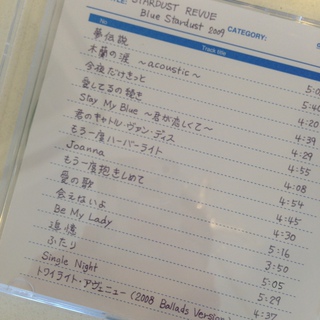 STARDUST REVUE
Blue Stardust 2009 CATEGORY:
No. Track title
夢伝説
木蘭の涙 ~acoustic~ 5:0
今夜だけきっと 5:40
愛してるの続き 4:20
Stay My Blue ~君が恋しくて~ 4:39
君のキャトル・ヴァン・ディス 4:29
もう一度ハーバーライト 4:55
Joanna 4:08
もう一度抱きしめて 4:54
愛の歌 4:45
会えないよ 4:30
Be My Lady 5:16
追憶 3:50
ふたり 5:05
Single Night 5:29
トワイライト・アヴェニュー (2008 Ballads Version) 4:37